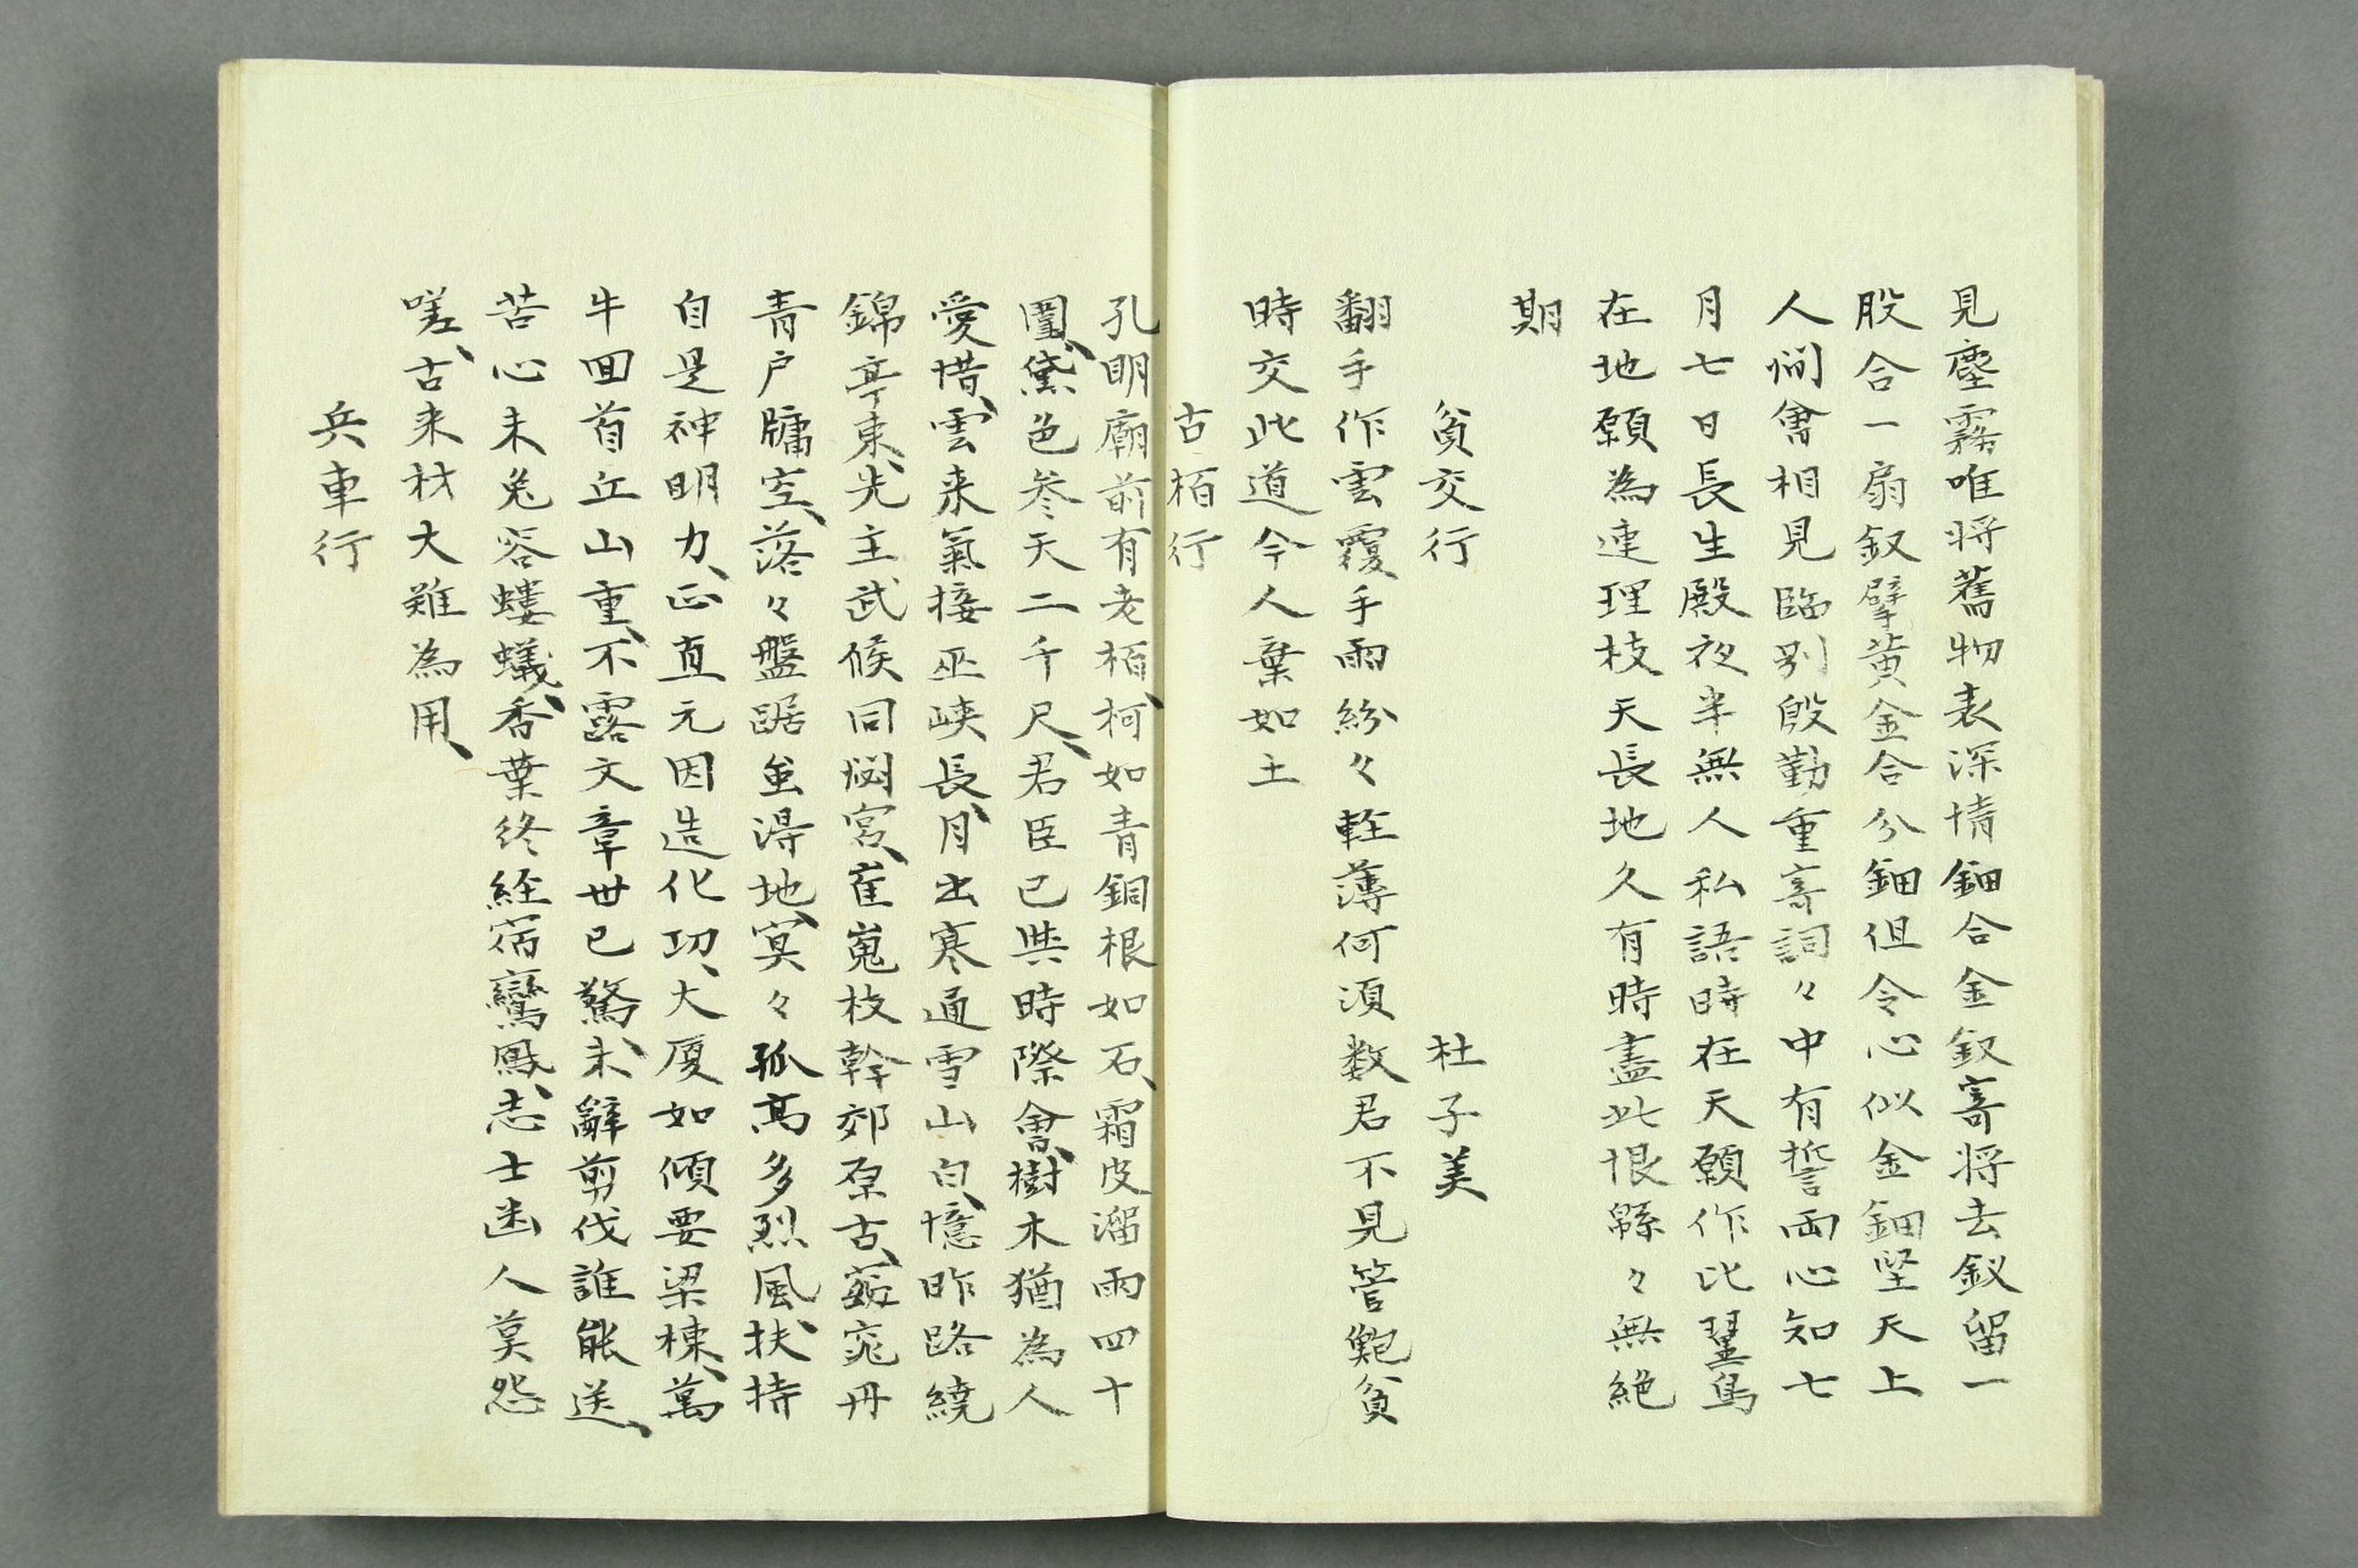 見塵霧唯将舊物表深情鈿合金釵寄将去釵留一
股合一扇釵擘黄金合分鈿但令心似金鈿堅天上
人間會相見臨別殷勤重寄詞々中有誓両心知七
月七日長生殿夜半無人私語時在天願作比翼鳥
在地願為連理枝天長地久有時盡此恨緜々無絶
期
貧交行 杜子美
翻手作雲覆手雨紛々軽薄何須数君不見管鮑貧
時交此道今人棄如土
古栢行
孔明廟前有老栢、柯如青銅根如石、霜皮溜雨四十
圍、黛色参天二千尺、君臣已與時際會、樹木猶為人
愛惜、雲来氣接巫峡長、月出寒通雪山白、憶昨路繞
錦亭東、先主武候同閟宮、崔嵬枝幹郊原古、窈窕丹
青戸牖空、落々盤踞虽得地、冥々孤高多烈風、扶持
自是神明力、正直元因造化功、大厦如傾要梁棟、萬
牛回首丘山重、不露文章世已驚、未辭剪伐誰能送、
苦心未免容螻蟻、香葉終経宿鸞鳳、志士幽人莫怨
嗟、古来材大難為用、
兵車行